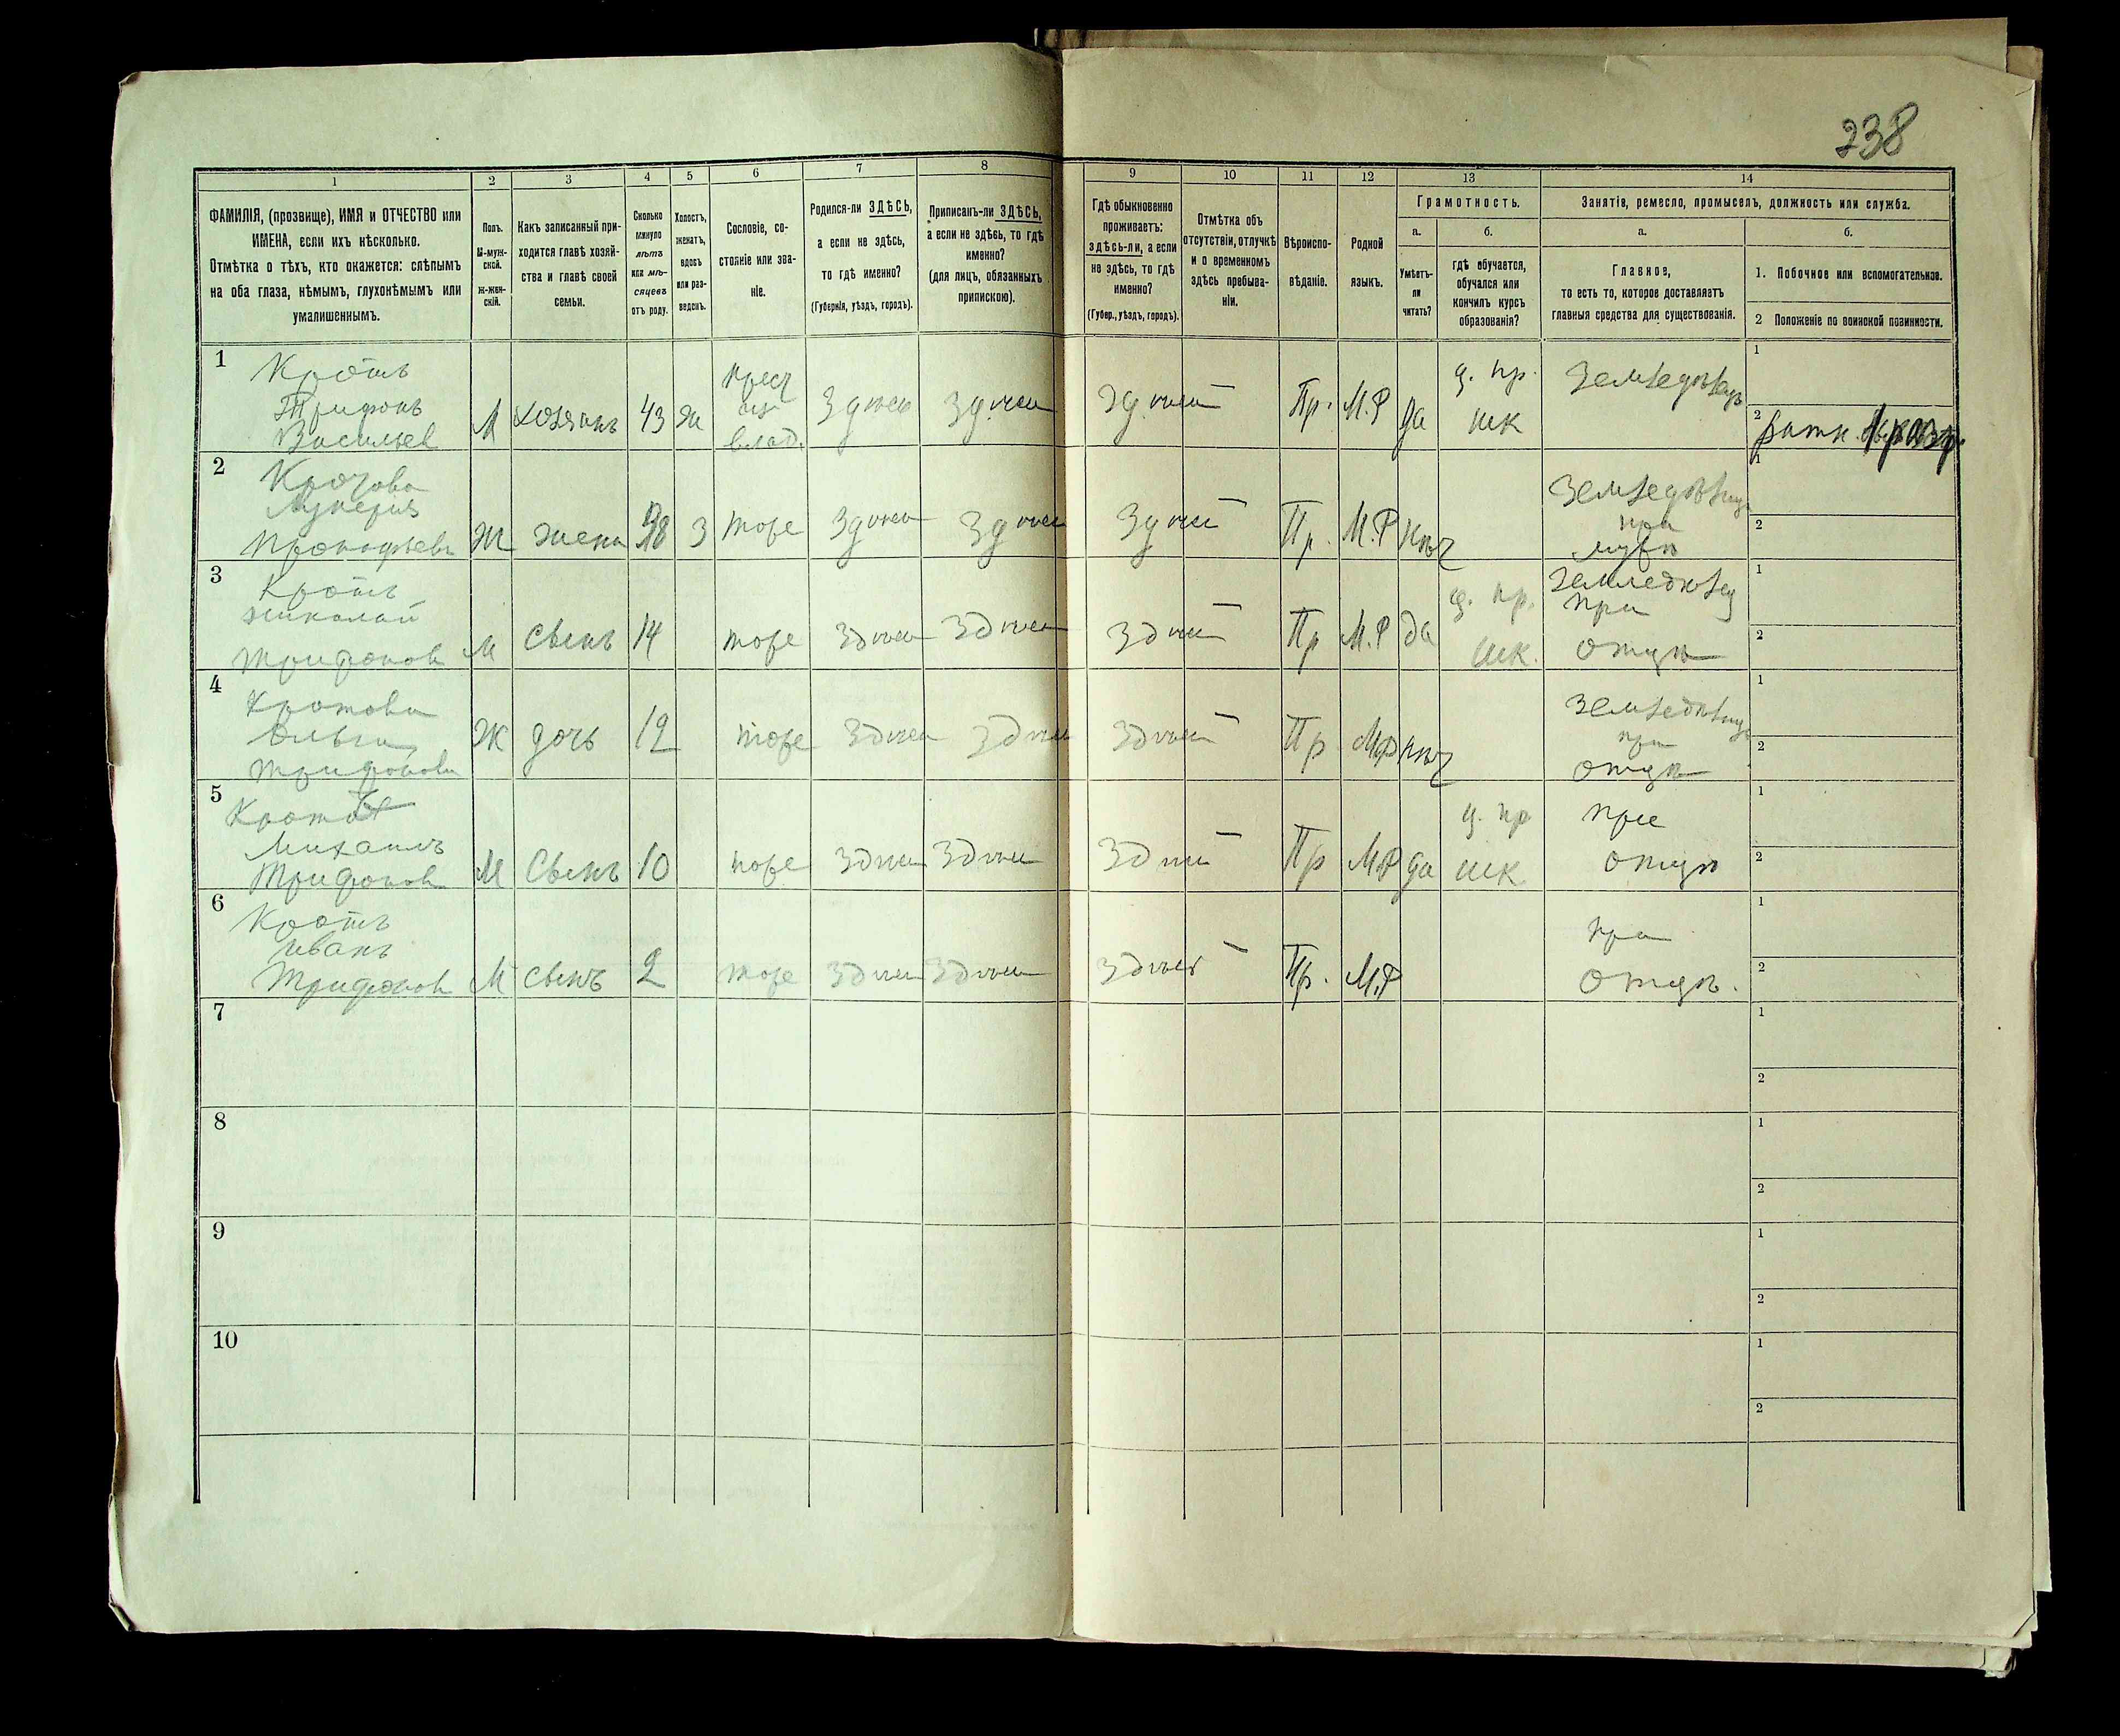 238
1
2
3
4
5
6
7
8
9
10
11
12
13
14
ФАМИЛІЯ, (прозвище), ИМЯ и ОТЧЕСТВО или
ИМЕНА, если ихъ нѣсколько.
Отмѣтка о тѣхъ, кто окажется: слѣпымъ
на оба глаза, нѣмымъ, глухонѣмымъ или
умалишеннымъ.
Полъ.
М-муж-
ской.
Ж-жен-
скій.
Какъ записанный при-
ходится главѣ хозяй-
ства и главѣ своей
семьи.
Сколько
минуло
лѣтъ
или мѣ-
сяцевъ
отъ роду.
Холостъ,
женатъ,
вдовъ
или раз-
веденъ.
Сословіе, со-
стояніе или зва-
ніе.
Родился-ли ЗДѢСЬ,
а если не здѣсь,
то гдѣ именно?
(Губернія, уѣздъ, городъ).
Приписанъ-ли ЗДѢСЬ,
а если не здѣсь, то гдѣ
именно?
(для лицъ, обязанныхъ
припискою).
Гдѣ обыкновенно
проживаетъ:
здѣсь-ли, а если
не здѣсь, то гдѣ
именно?
(Губер., уѣздъ, городъ).
Отмѣтка объ
отсутствіи, отлучкѣ
и о временномъ
здѣсь пребыва-
ніи.
Вѣроиспо-
вѣданіе.
Родной
языкъ.
Грамотность.
а.
Умѣетъ-
ли
читать?
б.
гдѣ обучается,
обучался или
кончилъ курсъ
образованія?
Занятіе, ремесло, промыселъ, должность или служба.
а.
Главное,
то есть то, которое доставляетъ
главныя средства для существованія.
б.
1. Побочное или вспомогательное.
2 Положеніе по воинской повинности.
1
Кротъ
Трифонъ
Васильев
М
хозяинъ
43
ж
крест
из
влад.
Здѣсь
Здѣсь
Здѣсь
—
Пр.
М.Р
да
ц. пр.
шк
Земледѣлец
1
2
ратн.
2
Кротова
Лукерія
Прокофьева
Ж
жена
38
З
тоже
Здѣсь
Здѣсь
Здѣсь
—
Пр.
М.Р
нѣт
Земледѣлец
при
мужѣ
1
2
3
Кротъ
Николай
Трифонов
М
Сынъ
14
тоже
Здѣсь
Здѣсь
Здѣсь
—
Пр
М.Р
да
ц. пр.
шк.
Земледѣлец
при
отцѣ
1
2
4
Кротова
Ольга
Трифонова
Ж
дочь
12
тоже
Здѣсь
Здѣсь
Здѣсь
—
Пр
М.Р
нѣт
Земледѣлец
при
отцѣ
1
2
5
Михаилъ
Трифонов
М
Сынъ
10
тоже
Здѣсь
Здѣсь
Здѣсь
—
Пр
М.Р
да
ц. пр
шк
при
отцѣ
1
2
6
Кротъ
Иванъ
Трифонов
М
сынъ
2
тоже
Здѣсь
Здѣсь
Здѣсь
—
Пр.
М.Р
при
отцѣ.
1
2
7
1
2
8
1
2
9
1
2
10
1
2